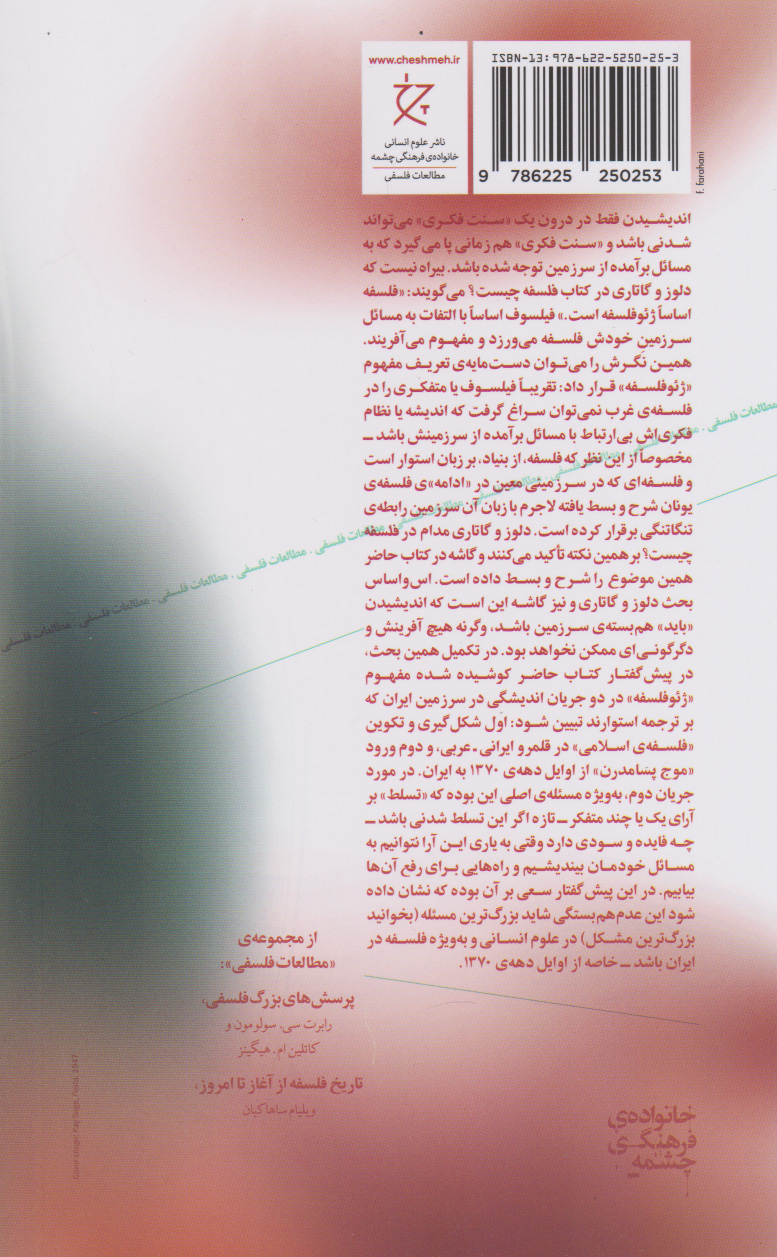 www.cheshmeh.ir
ناشر علوم انسانی
خانواده‌ی فرهنگی چشمه
مطالعات فلسفی
ISBN-13: 978-622-5250-25-3
9 786225 250253
f. farahani
اندیشیدن فقط در درون یک «سنت فکری» می‌تواند
شدنی باشد و «سنت فکری» هم زمانی پا می‌گیرد که به
مسائل برآمده از سرزمین توجه شده باشد. بیراه نیست که
دلوز و گاتاری در کتاب فلسفه چیست؟ می‌گویند: «فلسفه
اساساً ژئوفلسفه است.» فیلسوف اساساً با التفات به مسائل
سرزمین خودش فلسفه می‌ورزد و مفهوم می‌آفریند.
همین نگرش را می‌توان دست‌مایه‌ی تعریف مفهوم
«ژئوفلسفه» قرار داد: تقریباً فیلسوف یا متفکری را در
فلسفه‌ی غرب نمی‌توان سراغ گرفت که اندیشه یا نظام
فکری‌اش بی‌ارتباط با مسائل برآمده از سرزمینش باشد ــ
مخصوصاً از این نظر که فلسفه، از بنیاد، بر زبان استوار است
و فلسفه‌ای که در سرزمینی معین در «ادامه»ی فلسفه‌ی
یونان شرح و بسط یافته لاجرم با زبان آن سرزمین رابطه‌ی
تنگاتنگی برقرار کرده است. دلوز و گاتاری مدام در فلسفه
چیست؟ بر همین نکته تأکید می‌کنند و گاشه در کتاب حاضر
همین موضوع را شرح و بسط داده است. اس‌واساس
بحث دلوز و گاتاری و نیز گاشه این است که اندیشیدن
«باید» هم‌بسته‌ی سرزمین باشد، وگرنه هیچ آفرینش و
دگرگونی‌ای ممکن نخواهد بود. در تکمیل همین بحث،
در پیش‌گفتار کتاب حاضر کوشیده شده مفهوم
«ژئوفلسفه» در دو جریان اندیشگی در سرزمین ایران که
بر ترجمه استوارند تبیین شود: اوّل شکل‌گیری و تکوین
«فلسفه‌ی اسلامی» در قلمرو ایرانی ـ عربی، و دوم ورود
«موج پسامدرن» از اوایل دهه‌ی ۱۳۷۰ به ایران. در مورد
جریان دوم، به‌ویژه مسئله‌ی اصلی این بوده که «تسلط» بر
آرای یک یا چند متفکر ــ تازه اگر این تسلط شدنی باشد ــ
چه فایده و سودی دارد وقتی به یاری این آرا نتوانیم به
مسائل خودمان بیندیشیم و راه‌هایی برای رفع آن‌ها
بیابیم. در این پیش‌گفتار سعی بر آن بوده که نشان داده
شود این عدم هم‌بستگی شاید بزرگ‌ترین مسئله (بخوانید
بزرگ‌ترین مشکل) در علوم انسانی و به‌ویژه فلسفه در
ایران باشد ــ خاصه از اوایل دهه‌ی ۱۳۷۰.
مطالعات فلسفی . مطالعات فلسفی . مطالعات فلسفی . مطالعات فلسفی . مطالعات فلسفی . مطالعات فلسفی . مطالعات فلسفی . مطالعات فلسفی . مطالعات فلسفی . مطالعات فلسفی
از مجموعه‌ی
«مطالعات فلسفی»:
پرسش‌های بزرگ فلسفی،
رابرت سی. سولومون و
کاتلین ام. هیگینز
تاریخ فلسفه از آغاز تا امروز،
ویلیام ساهاکیان
Cover image: Kay Sage, Fields, 1947
خانواده‌ی
فرهنگی
چشمه